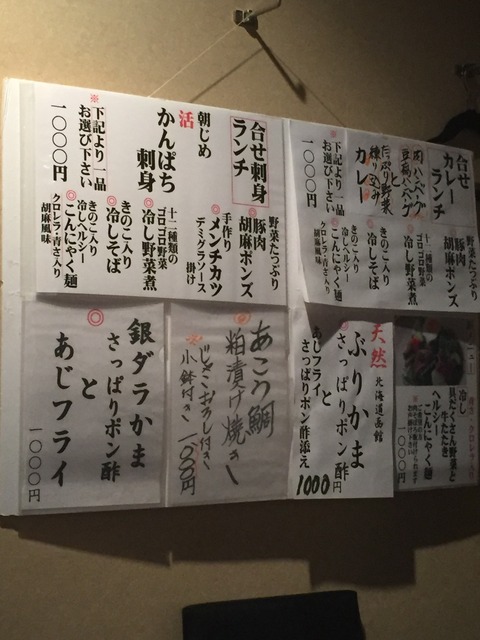 合せ
カレー
ランチ
肉ハンバーグ
豆腐ハンバーグ
たっぷり野菜
練り込み
カレー
※下記より一品
お選び下さい
一〇〇〇円
野菜たっぷり
豚肉
胡麻ポンズ
十二種類の
ゴロゴロ野菜
◎冷し野菜煮
きのこ入り
◎冷しそば
きのこ入り
冷しヘルシー
◎こんにゃく麺
クロレラ・青さ入り
胡麻風味
合せ刺身
ランチ
朝じめ
活
かんぱち
刺身
※下記より一品
お選び下さい
一〇〇〇円
野菜たっぷり
◎豚肉
胡麻ポンズ
手作り
◎メンチカツ
デミグラソース
掛け
十二種類の
ゴロゴロ野菜
◎冷し野菜煮
きのこ入り
◎冷しそば
きのこ入り
冷しヘルシー
◎こんにゃく麺
クロレラ・青さ入り
胡麻風味
冷し
具だくさん野菜と
牛たたき
ヘルシー
こんにゃく麺
一〇〇〇円
天然
北海道函館
ぶりかま
さっぱりポン酢
と
あじフライ
さっぱりポン酢添え
1000円
あこう鯛
粕漬け焼き
じゃこおろし付き
小鉢付き
一〇〇〇円
◎
銀ダラかま
さっぱりポン酢
と
あじフライ
一〇〇〇円